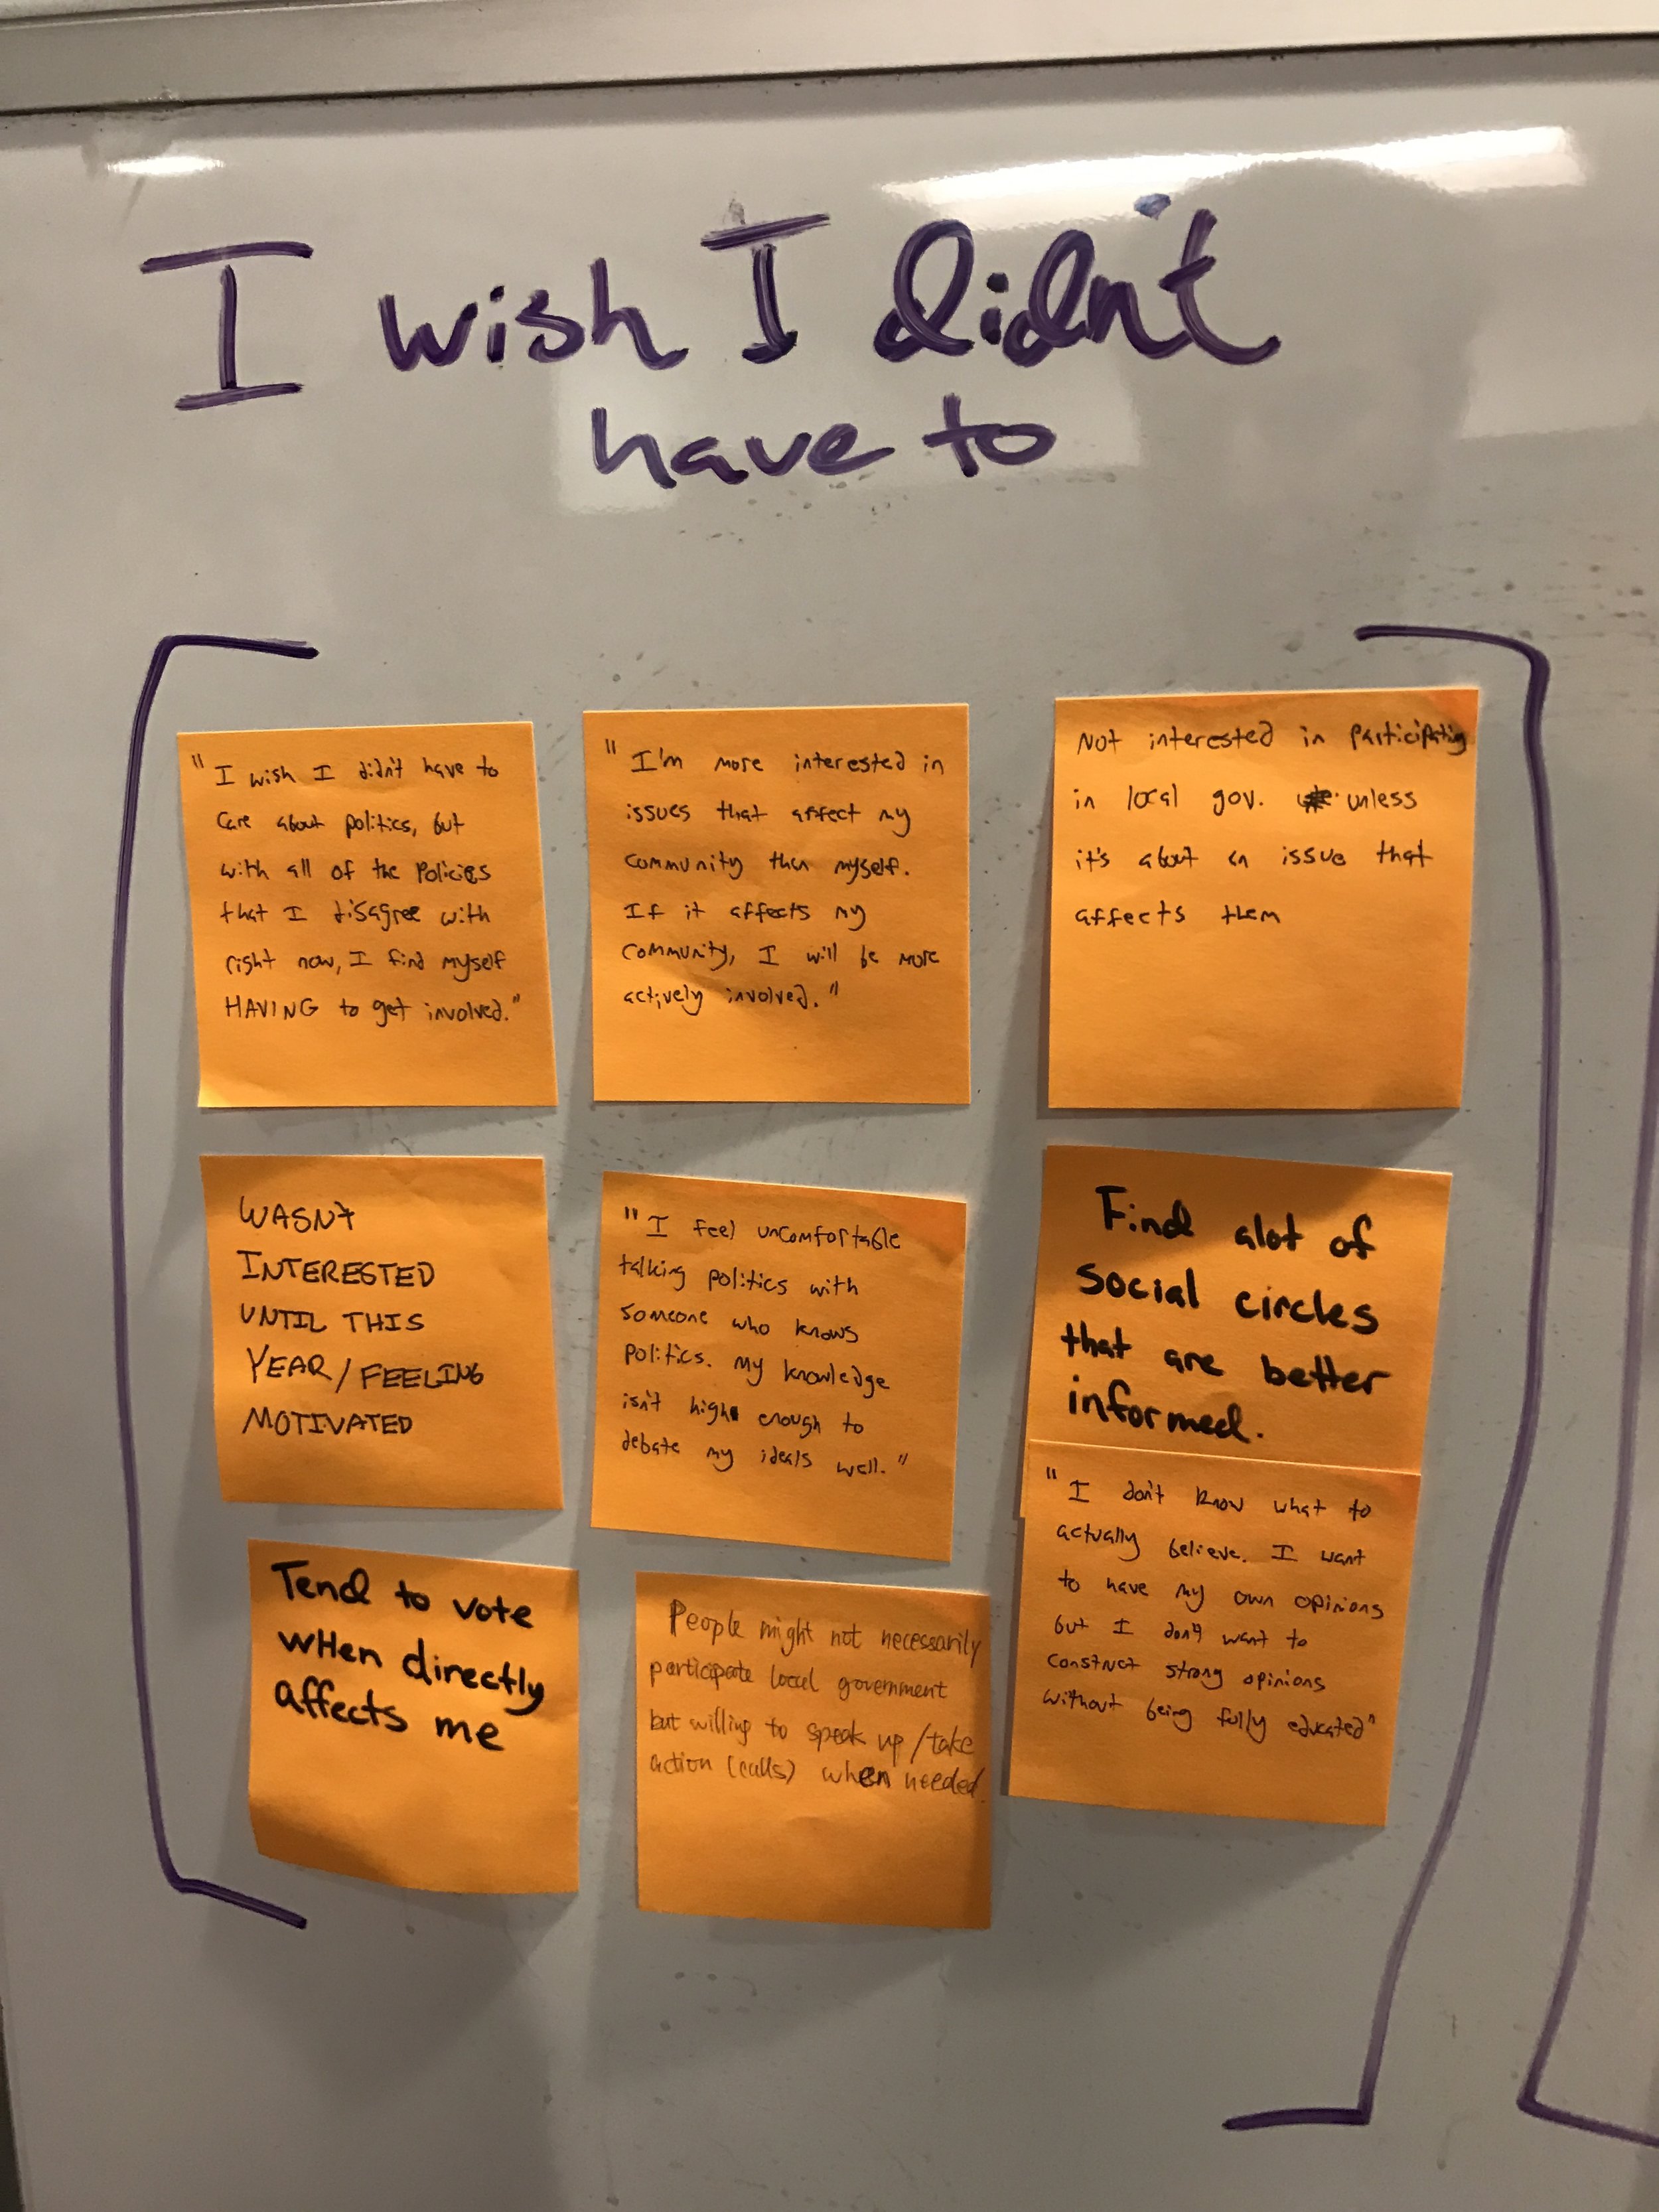 I wish I didn't
have to
"I wish I didn't have to
care about politics, but
with all of the policies
that I disagree with
right now, I find myself
HAVING to get involved."
"I'm more interested in
issues that affect my
community than myself.
If it affects my
community, I will be more
actively involved."
Not interested in participating
in local gov. unless
it's about an issue that
affects them
WASN'T
INTERESTED
UNTIL THIS
YEAR/FEELING
MOTIVATED
"I feel uncomfortable
talking politics with
someone who knows
politics. My knowledge
isn't high enough to
debate my ideals well."
Find alot of
social circles
that are better
informed.
Tend to vote
when directly
affects me
People might not necessarily
participate local government
but willing to speak up/take
action (calls) when needed.
"I don't know what to
actually believe. I want
to have my own opinions
but I don't want to
construct strong opinions
without being fully educated"